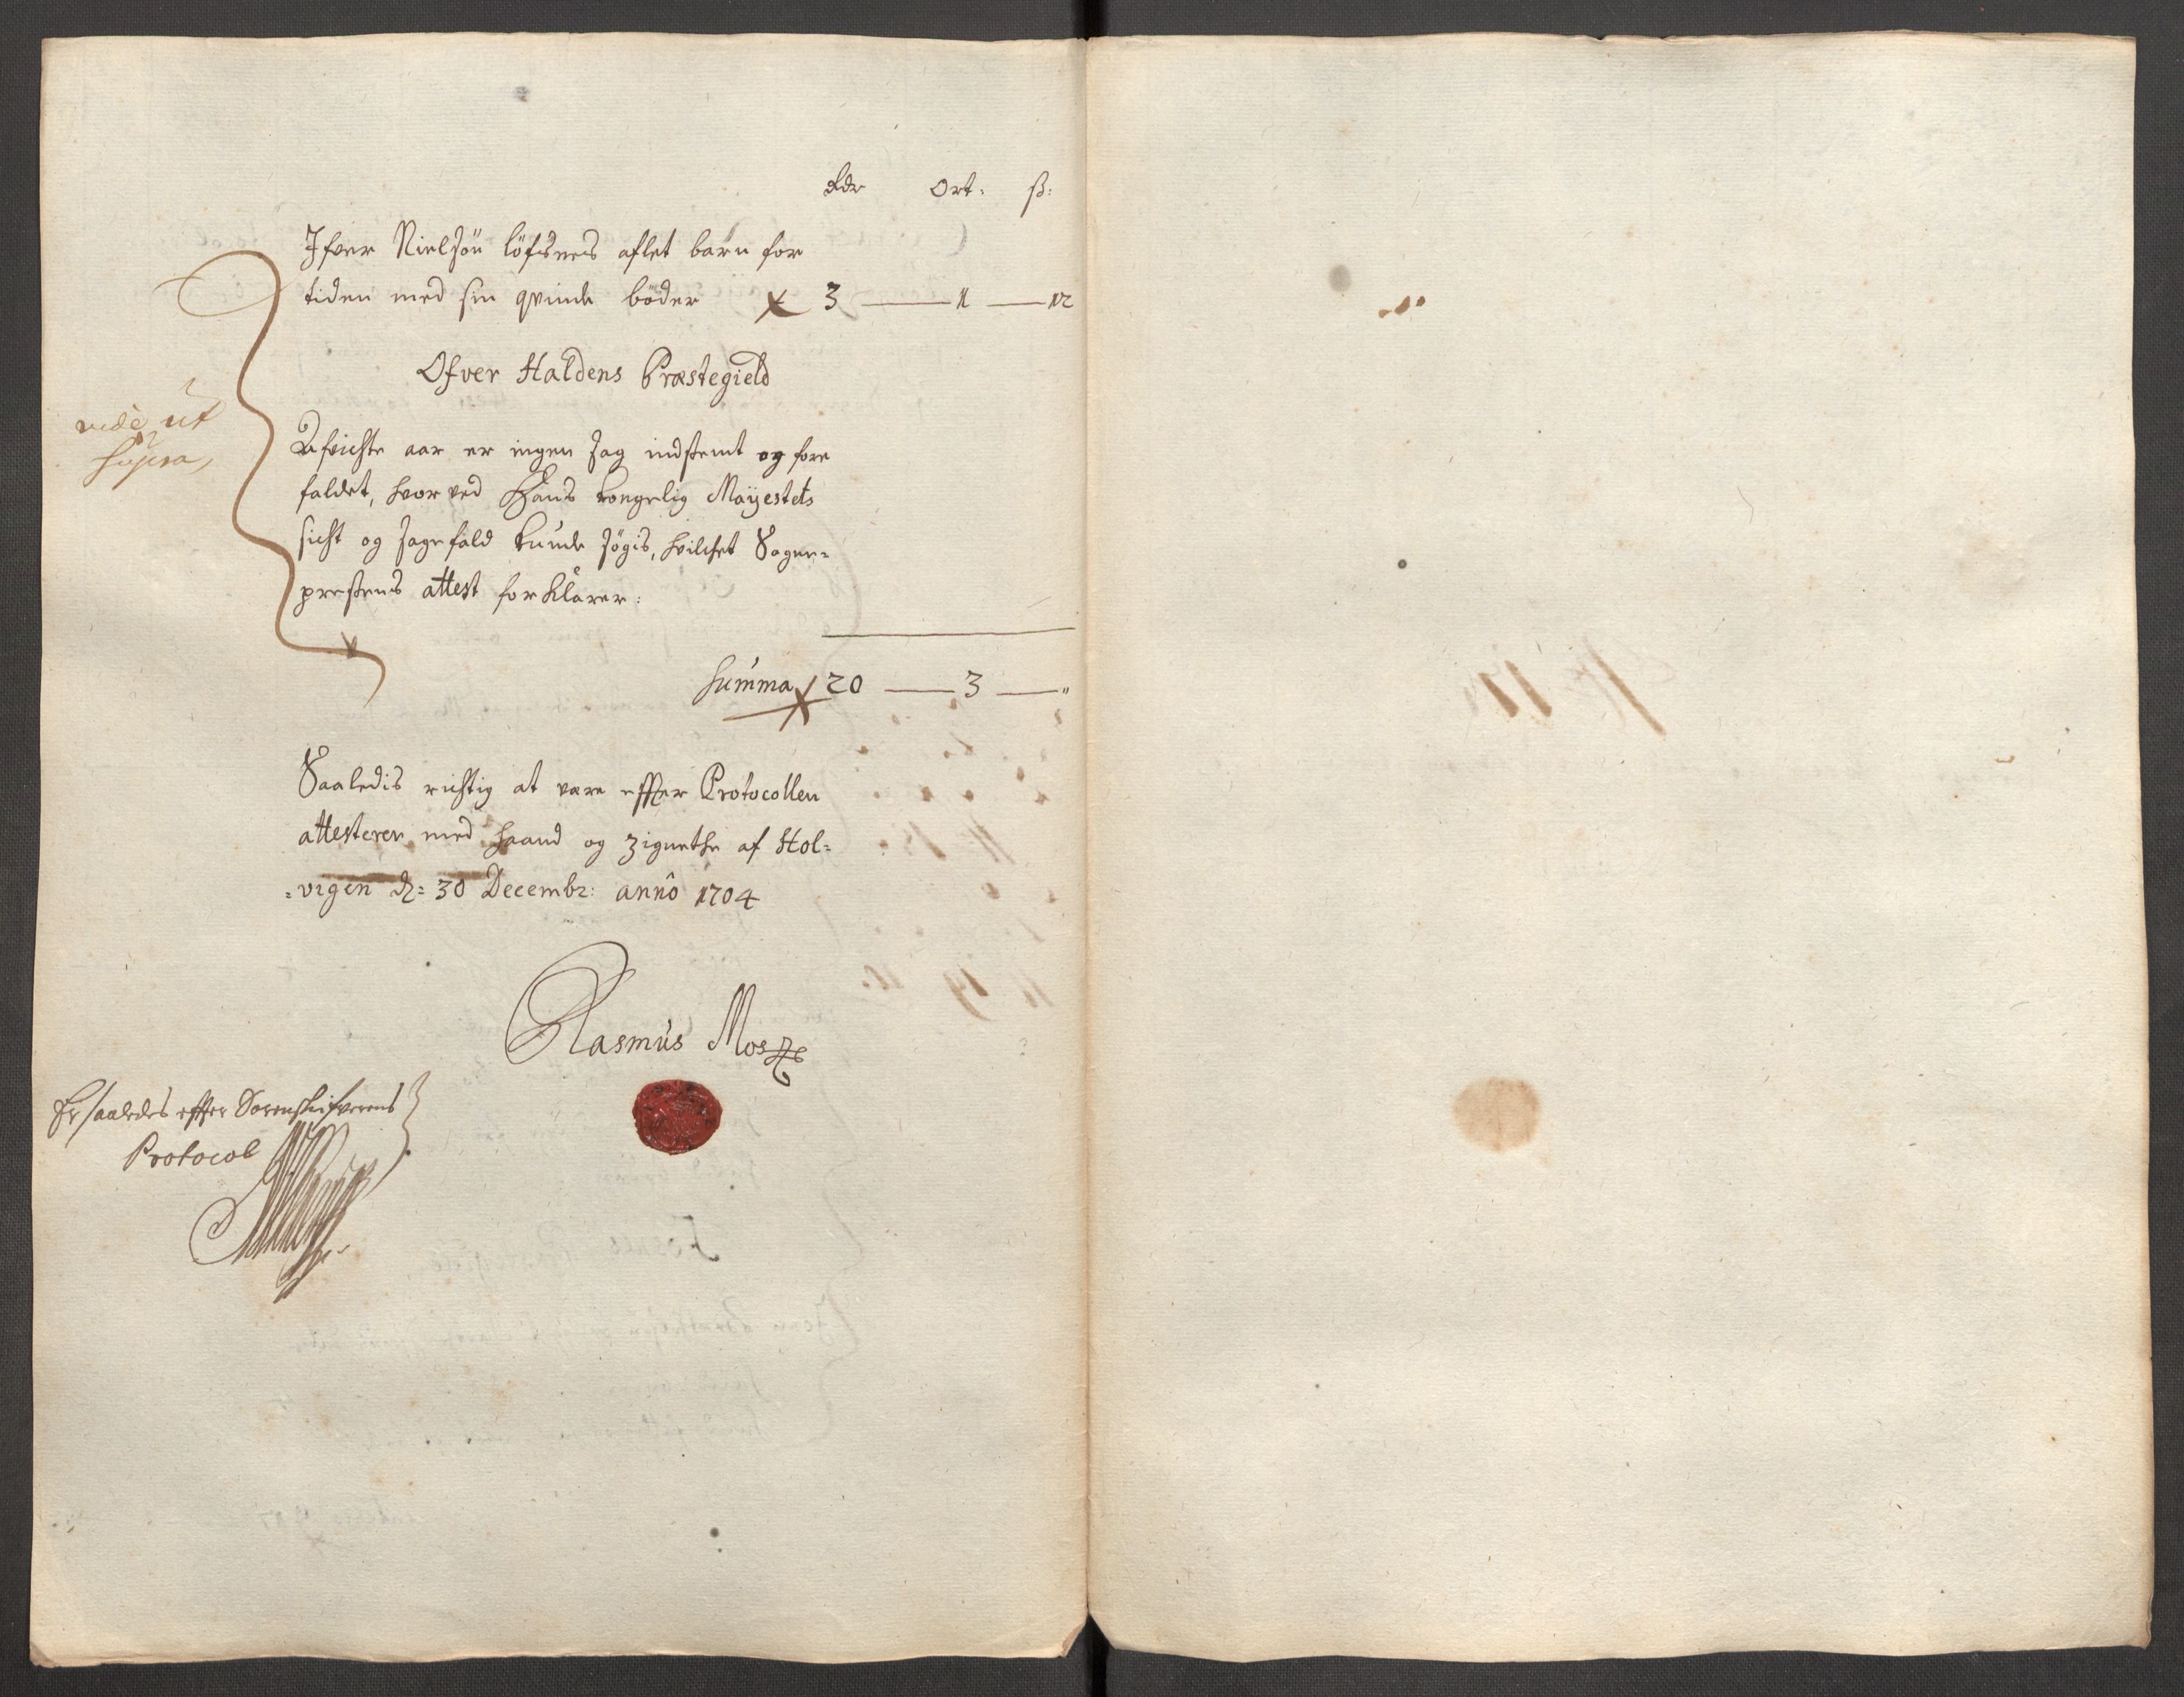 Rdr Ort: ß:
Ifver Nielsøn löfsnes aflet barn for
tiden med sin qvinde böder 3 — 1 — 12
Ofver Haldens Præstegield
Afvichte aar er ingen sag indstemt og fore
faldet, hvor ved Hans kongelig Mayestets
sicht og sagefald kunde søgis, hvilchet Sogne=
prestens attest forklarer:
vide ut
supra
Summa 20 — 3 — "
Saaledis richtig at være effter Protocollen
attesterer med haand og zignethe af Hol=
=vigen d: 30 Decembr: anno 1704
Rasmus Mos
Er saaledes effter Sorenskrifverens
Protocol